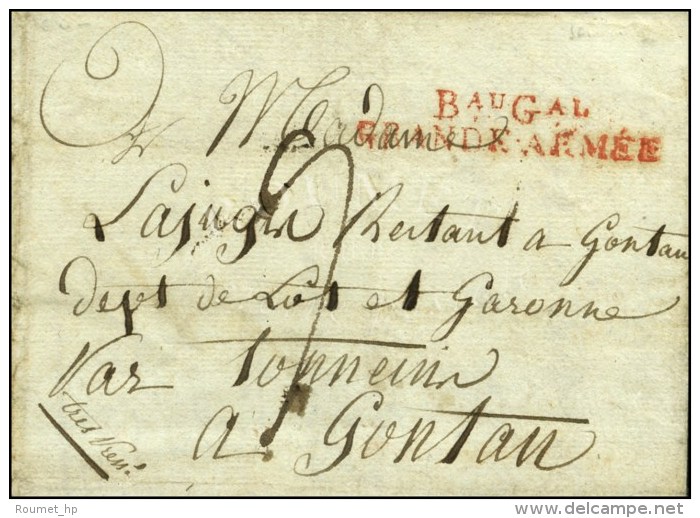 BAUGAL
GRANDE ARMÉE
A Madame
Lajugie Restant a Gontau
dept de Lot et Garonne
Par tonneins
a Gontau
tres
Roumet_hp
delcampe.net